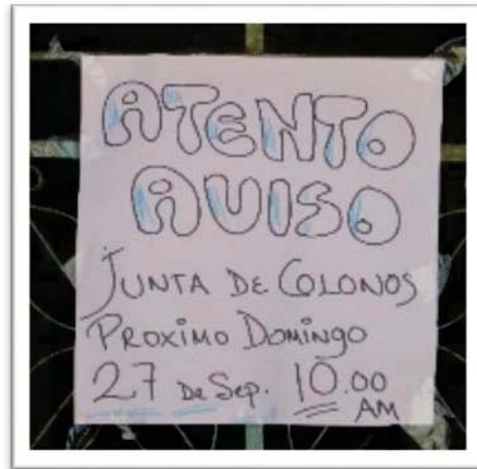 ATENTO
AVISO
JUNTA DE COLONOS
PROXIMO DOMINGO
27 DE SEP. 10.00
AM